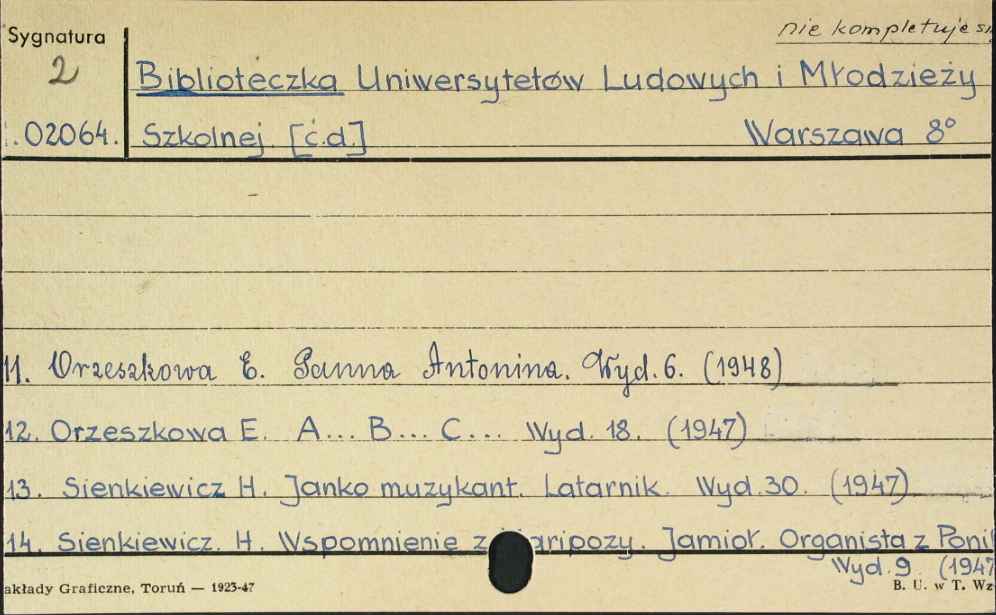 nie kompletuje
Sygnatura
2
Biblioteczka Uniwersytetów Ludowych i Młodzieży
.02064. Szkolnej [c.d.] Warszawa 8°
11. Orzeszkowa E. Panna Antonina. Wyd. 6. (1948)
12. Orzeszkowa E. A... B... C... Wyd. 18. (1947)
13. Sienkiewicz H. Janko muzykant. Latarnik. Wyd. 30. (1947)
14. Sienkiewicz. H. Wspomnienie z Maripozy. Jamioł. Organista z Poni
Wyd. 9 (1947
akłady Graficzne, Toruń — 1923-47 B. U. w T. Wz